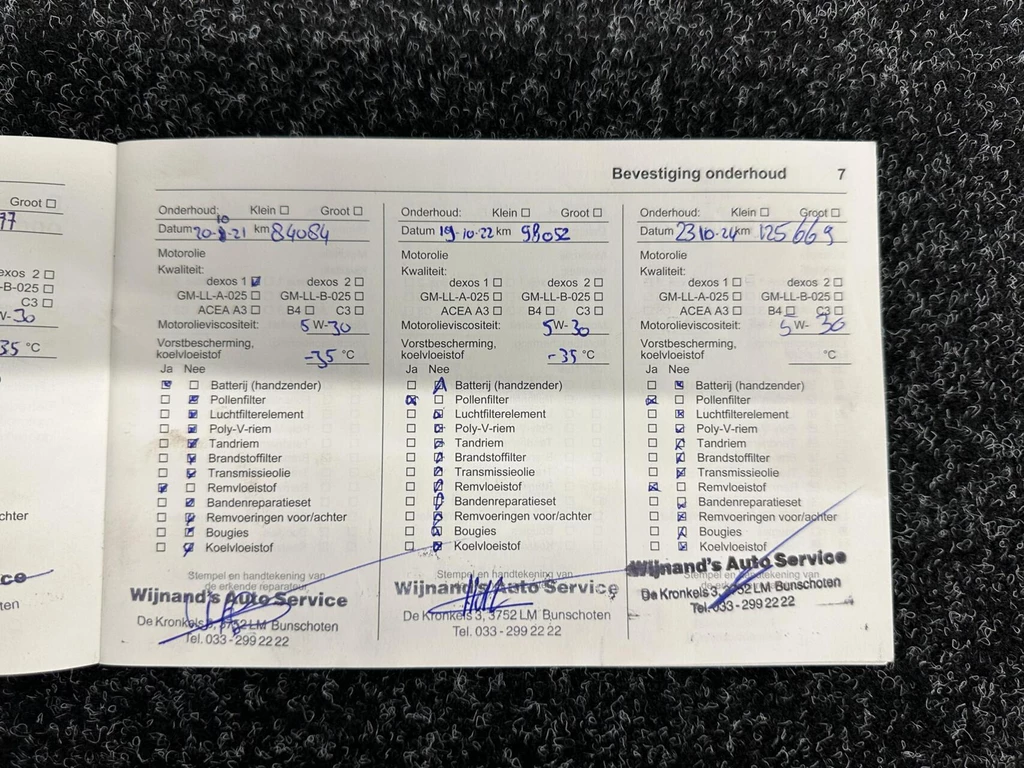 Groot ☐
77
exos 2 ☐
L-B-025 ☐
C3 ☐
W-30
35 °C
chter
ce
ten
Bevestiging onderhoud 7
Onderhoud: Klein ☐ Groot ☐
Datum 20-10-21 km 84084
Motorolie
Kwaliteit:
dexos 1 ☑ dexos 2 ☐
GM-LL-A-025 ☐ GM-LL-B-025 ☐
ACEA A3 ☐ B4 ☐ C3 ☐
Motorolieviscositeit: 5W-30
Vorstbescherming,
koelvloeistof -35 °C
Ja Nee
☑ ☐ Batterij (handzender)
☐ ☑ Pollenfilter
☐ ☑ Luchtfilterelement
☐ ☑ Poly-V-riem
☐ ☑ Tandriem
☐ ☑ Brandstoffilter
☐ ☑ Transmissieolie
☑ ☐ Remvloeistof
☐ ☑ Bandenreparatieset
☐ ☑ Remvoeringen voor/achter
☐ ☑ Bougies
☐ ☑ Koelvloeistof
Stempel en handtekening van
de erkende reparateur
Wijnand's Auto Service
De Kronkels 3, 3752 LM Bunschoten
Tel. 033 - 299 22 22
Onderhoud: Klein ☐ Groot ☐
Datum 19-10-22 km 98052
Motorolie
Kwaliteit:
dexos 1 ☐ dexos 2 ☐
GM-LL-A-025 ☐ GM-LL-B-025 ☐
ACEA A3 ☐ B4 ☐ C3 ☐
Motorolieviscositeit: 5W-30
Vorstbescherming,
koelvloeistof -35 °C
Ja Nee
☐ ☑ Batterij (handzender)
☑ ☐ Pollenfilter
☐ ☑ Luchtfilterelement
☐ ☑ Poly-V-riem
☐ ☑ Tandriem
☐ ☑ Brandstoffilter
☐ ☑ Transmissieolie
☐ ☑ Remvloeistof
☐ ☑ Bandenreparatieset
☐ ☑ Remvoeringen voor/achter
☐ ☑ Bougies
☐ ☑ Koelvloeistof
Stempel en handtekening van
Wijnand's Auto Service
De Kronkels 3, 3752 LM Bunschoten
Tel. 033 - 299 22 22
Onderhoud: Klein ☐ Groot ☐
Datum 23 10-24 km 125669
Motorolie
Kwaliteit:
dexos 1 ☐ dexos 2 ☐
GM-LL-A-025 ☐ GM-LL-B-025 ☐
ACEA A3 ☐ B4 ☐ C3 ☐
Motorolieviscositeit: 5W-30
Vorstbescherming,
koelvloeistof °C
Ja Nee
☐ ☑ Batterij (handzender)
☑ ☐ Pollenfilter
☐ ☑ Luchtfilterelement
☐ ☑ Poly-V-riem
☐ ☑ Tandriem
☐ ☑ Brandstoffilter
☐ ☑ Transmissieolie
☑ ☐ Remvloeistof
☐ ☑ Bandenreparatieset
☐ ☑ Remvoeringen voor/achter
☐ ☑ Bougies
☐ ☑ Koelvloeistof
Wijnand's Auto Service
De Kronkels 3, 3752 LM Bunschoten
Tel. 033 - 299 22 22